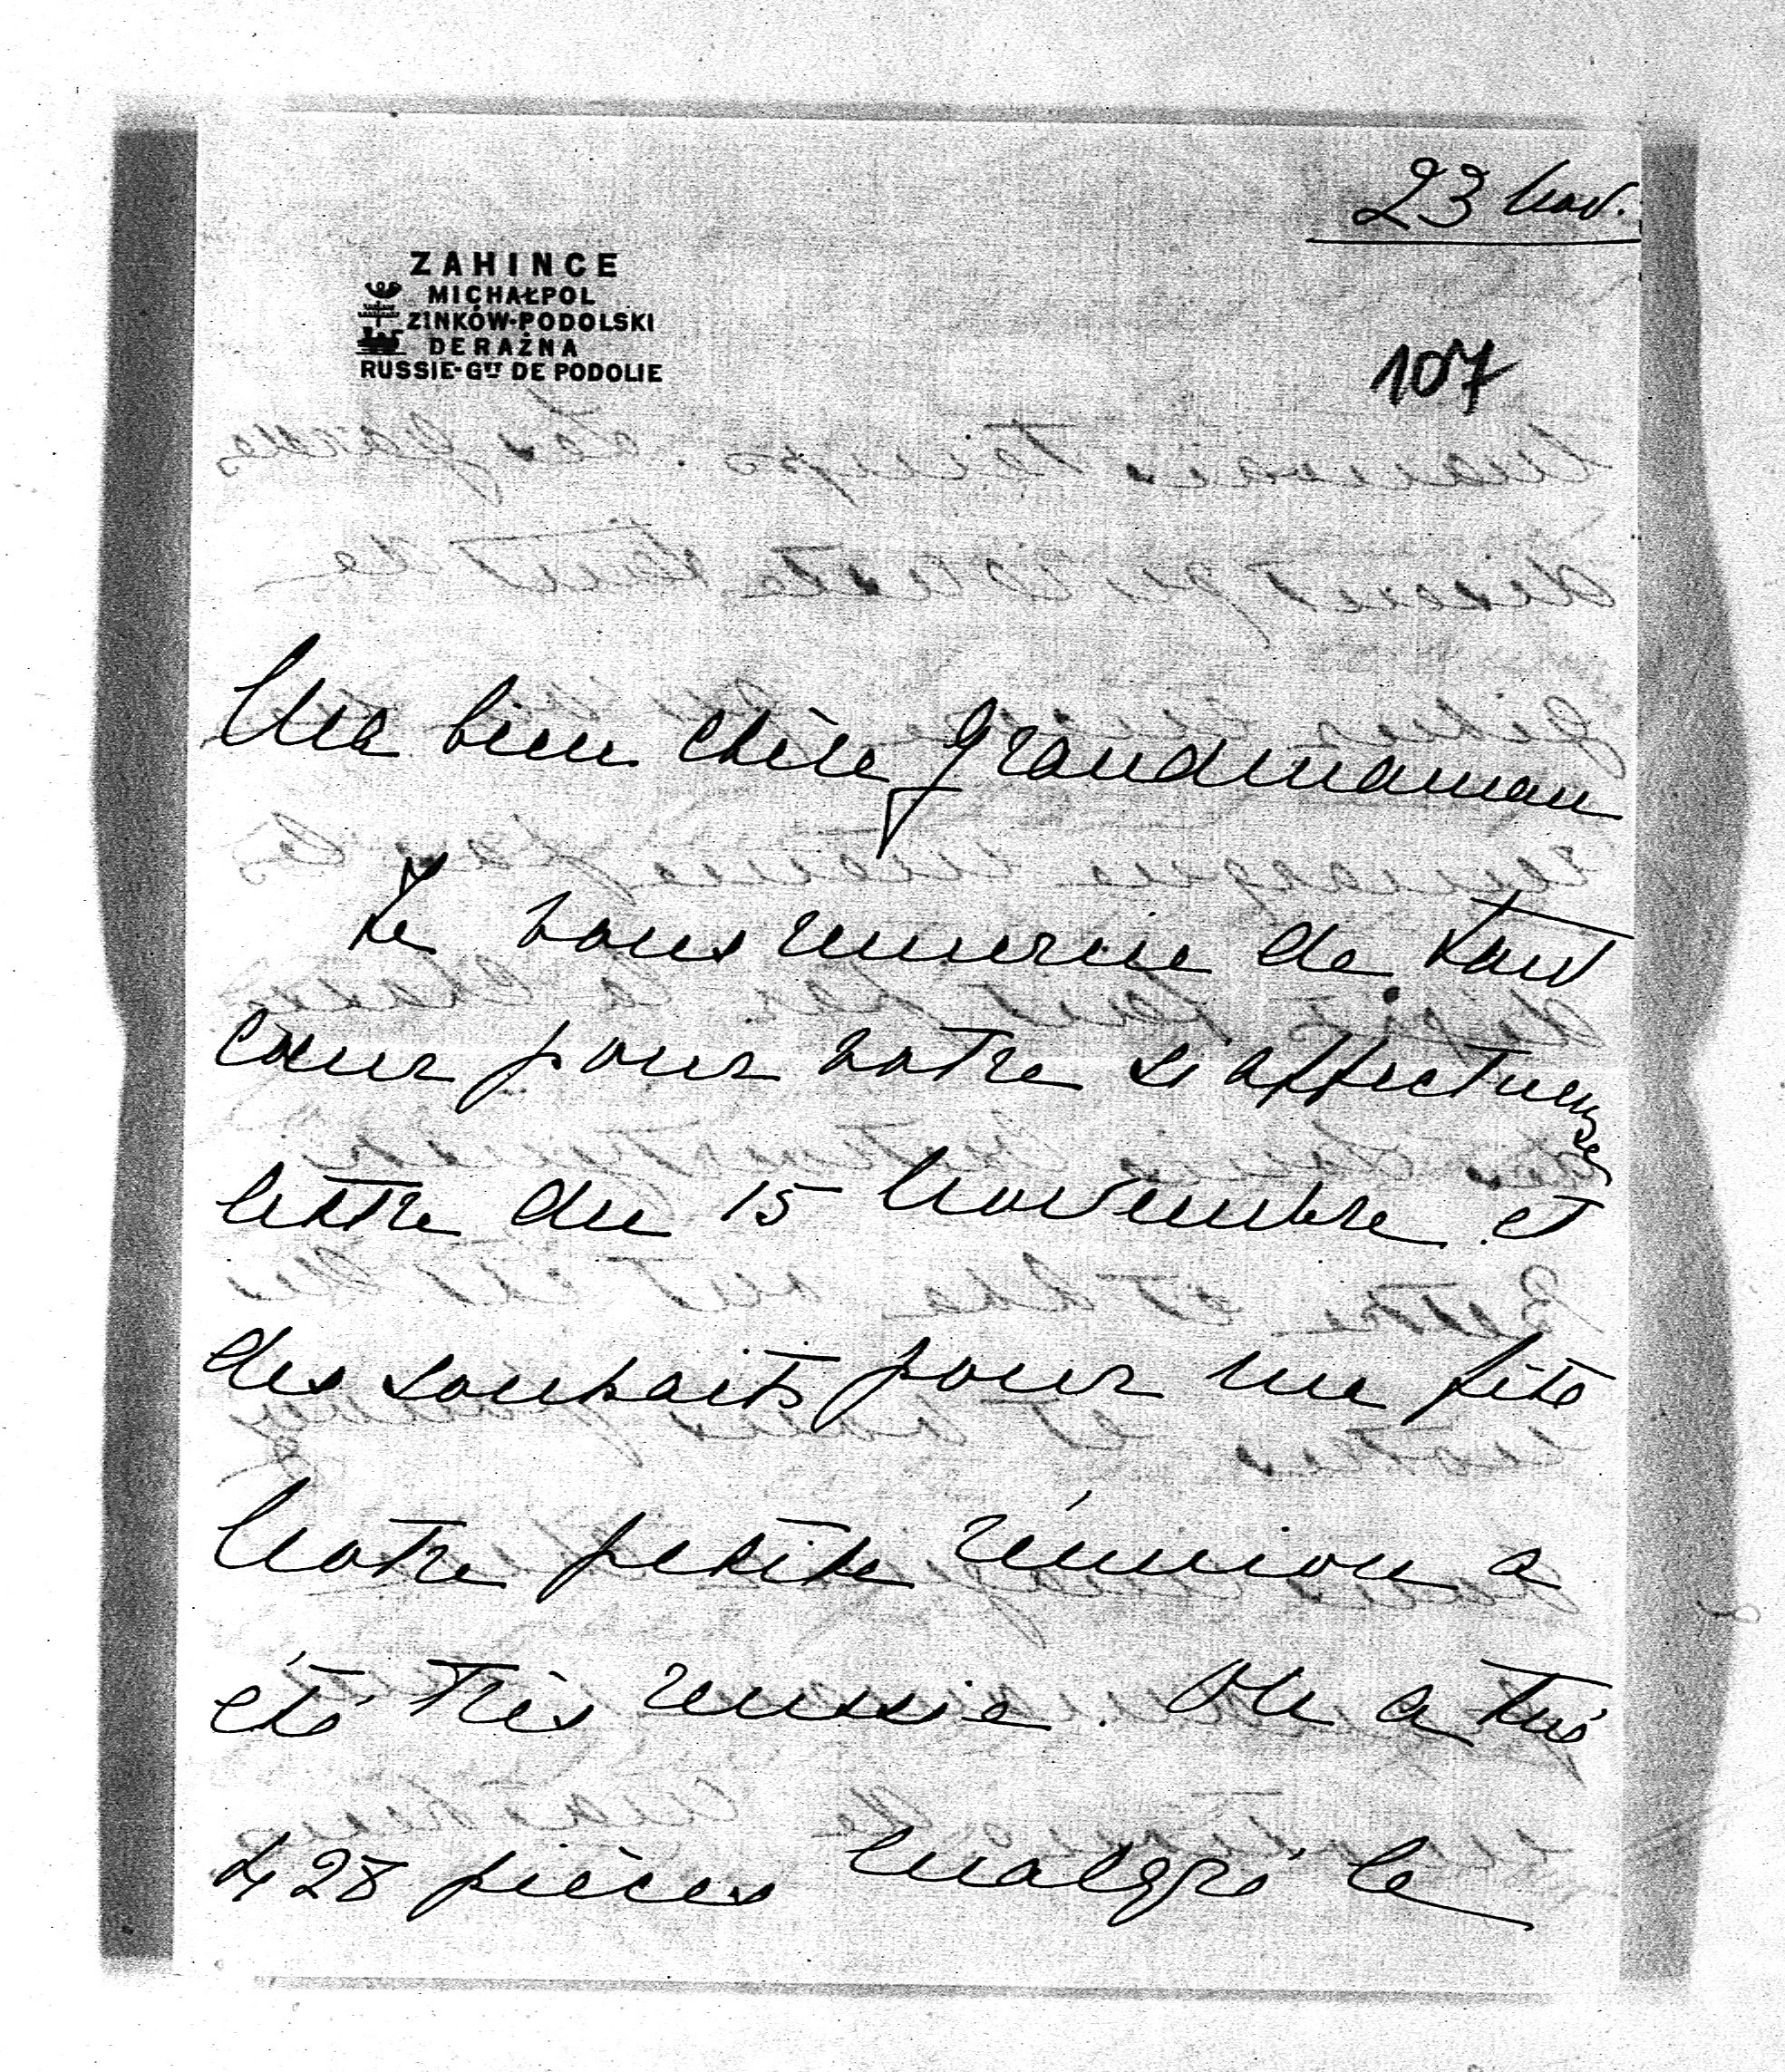 23 Nov.
ZAHINCE
MICHAŁPOL
ZINKÓW-PODOLSKI
DERAŻNA
RUSSIE-Gᵛᵗ DE PODOLIE
107
Ma bien chère Grandmaman
Je vous remercie de tout
cœur pour votre si affectueuse
lettre du 15 Novembre et
des souhaits pour ma fête
Notre petite réunion a
été très reussie. On a tué
428 pièces malgré le